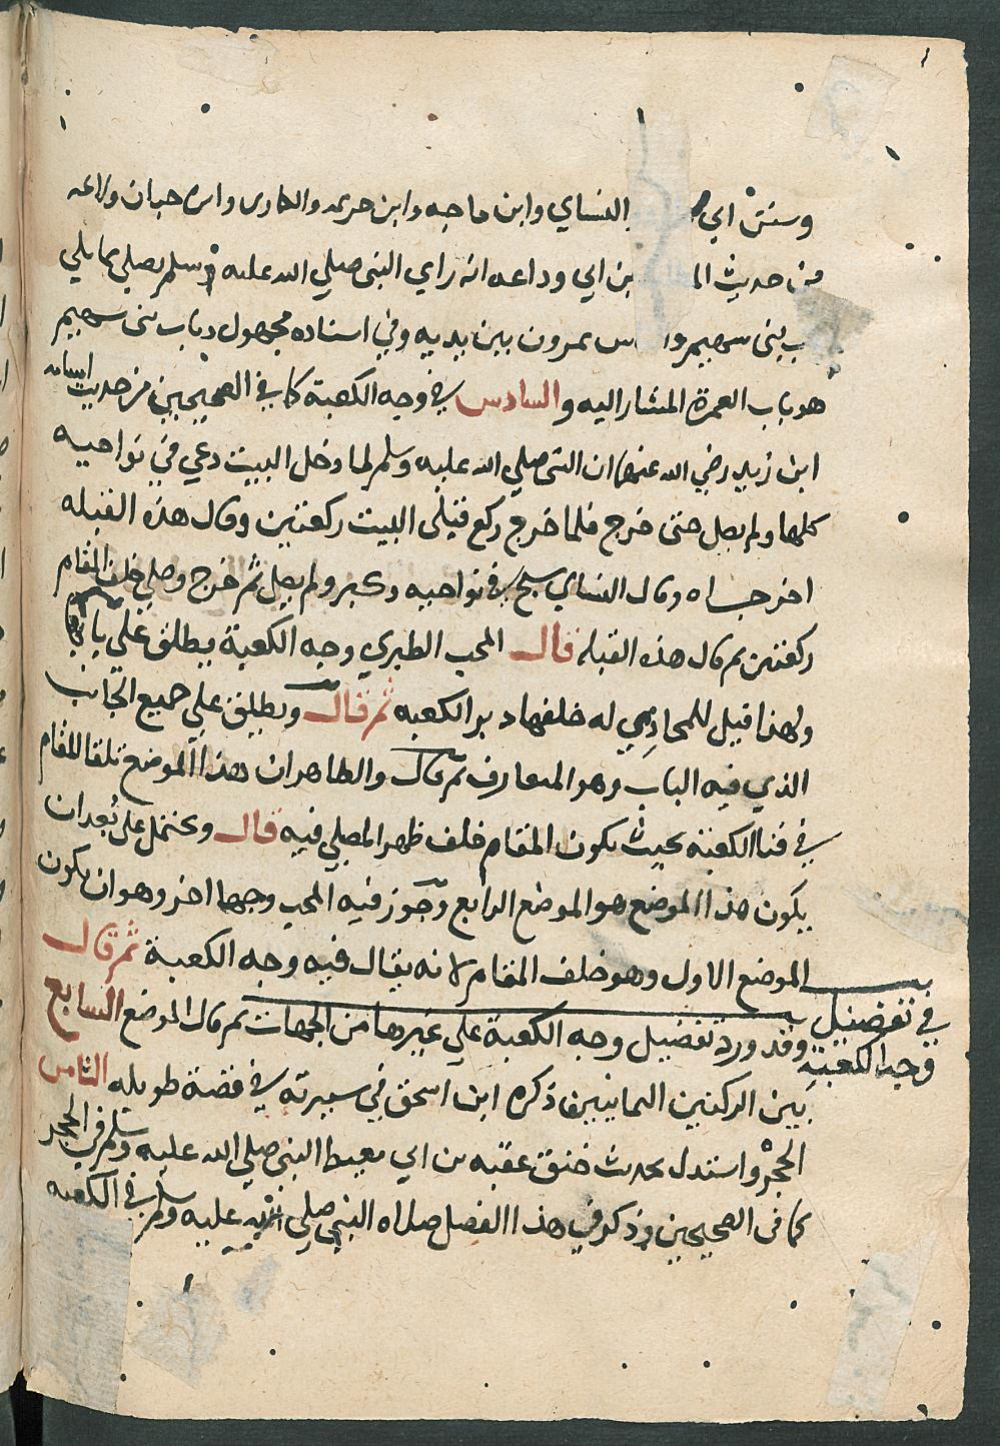 وسنن ابي النساي وابن ماجه وابن خزيمه والحاكم وابن حبان ولاعه
من حديث الم بن ابي وداعه انه راي النبي صلي الله عليه وسلم يصلي مما يلي
باب بني سهم والناس يمرون بين يديه وفي اسناده مجهول وباب بني سهم
هو باب العمرة المشار اليه والسادس في وجه الكعبة كما في الصحيحين من حديث اسامه
ابن زيد رضي الله عنهما ان النبي صلي الله عليه وسلم لما دخل البيت دعي في نواحيه
كلها ولم يصل حتي خرج فلما خرج ركع قبلي البيت ركعتين وقال هذه القبله
اخرجاه وقال النساي سبح في نواحيه وكبر ولم يصل ثم خرج وصلي خلف المقام
ركعتين ثم قال هذه القبله قال المحب الطبري وجه الكعبة يطلق علي بابها
ولهذا قيل للمحاذي له خلفها دبر الكعبه ثم قال ويطلق علي جميع الجانب
الذي فيه الباب وهو المتعارف ثم قال والظاهر ان هذا الموضع تلقا المقام
في فنا الكعبة بحيث يكون المقام خلف ظهر المصلي فيه قال ويحتمل علي بعد ان
يكون هذا الموضع هو الموضع الرابع وجوز فيه المحب وجها اخر وهو ان يكون
الموضع الاول وهو خلف المقام لانه يقال فيه وجه الكعبة ثم قال
وقد ورد تفضيل وجه الكعبة علي غيرها من الجهات ثم قال الموضع السابع
في تفضيل
وجه الكعبة
بين الركنين اليمانيين ذكره ابن اسحق في سيرته في قصة طويله الثامن
الحجر واستدل بحديث خنق عقبه بن ابي معيط النبي صلي الله عليه وسلم في الحجر
كما في الصحيحين وذكر في هذا الفصل صلاه النبي صلي الله عليه وسلم في الكعبه